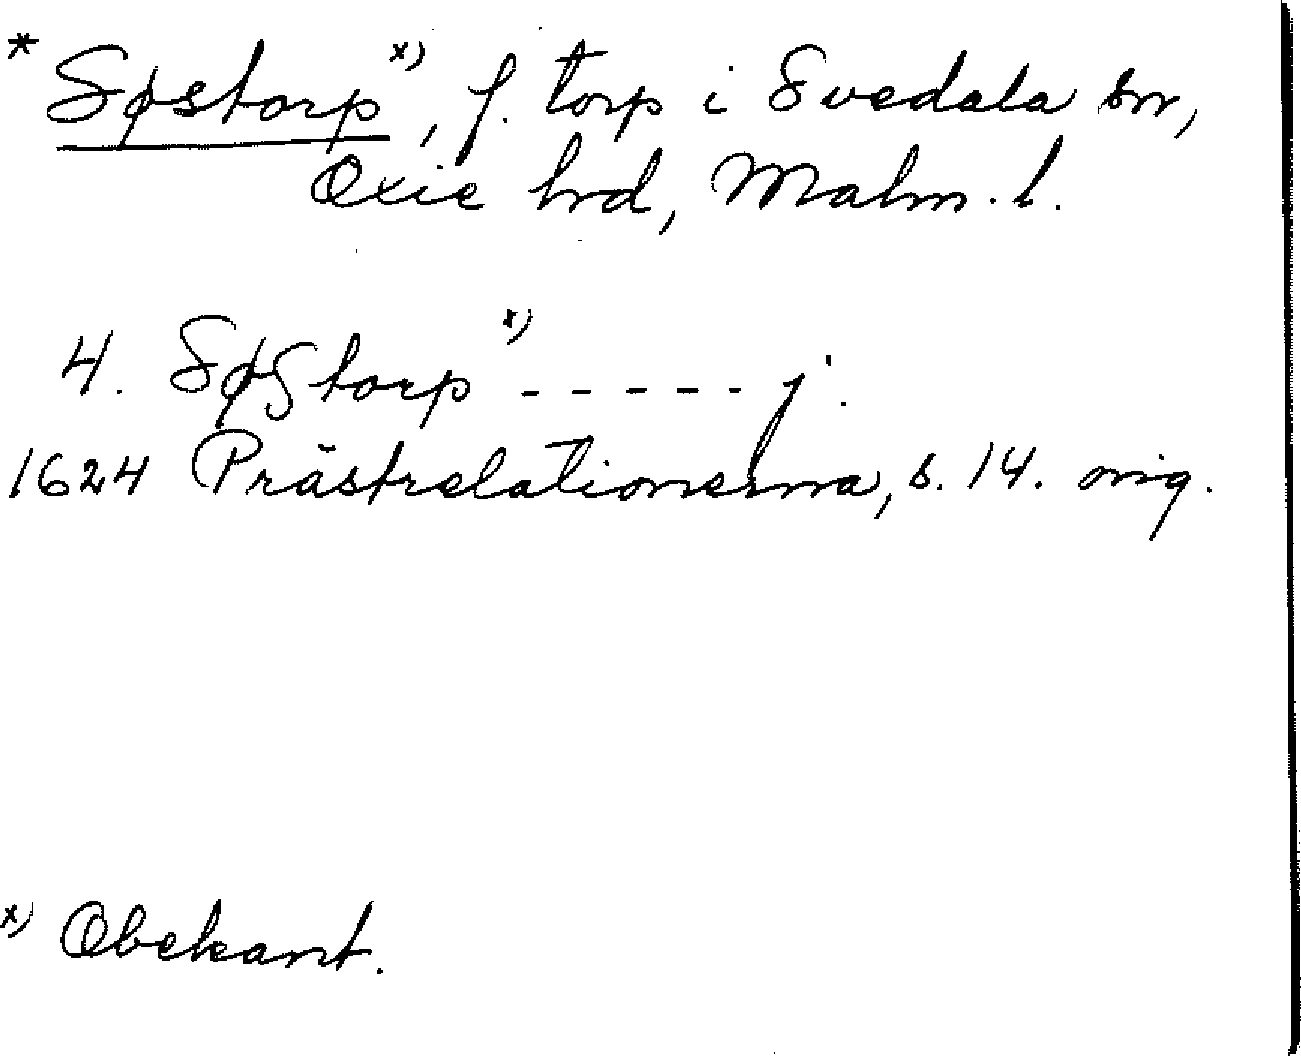 * Søstorp x), f. torp i Svedala sn,
Oxie hrd, Malm. l.
4. SøStorp x) - - - - - j.
1624 Prästrelationerna, s. 14. orig.
x) Obekant.